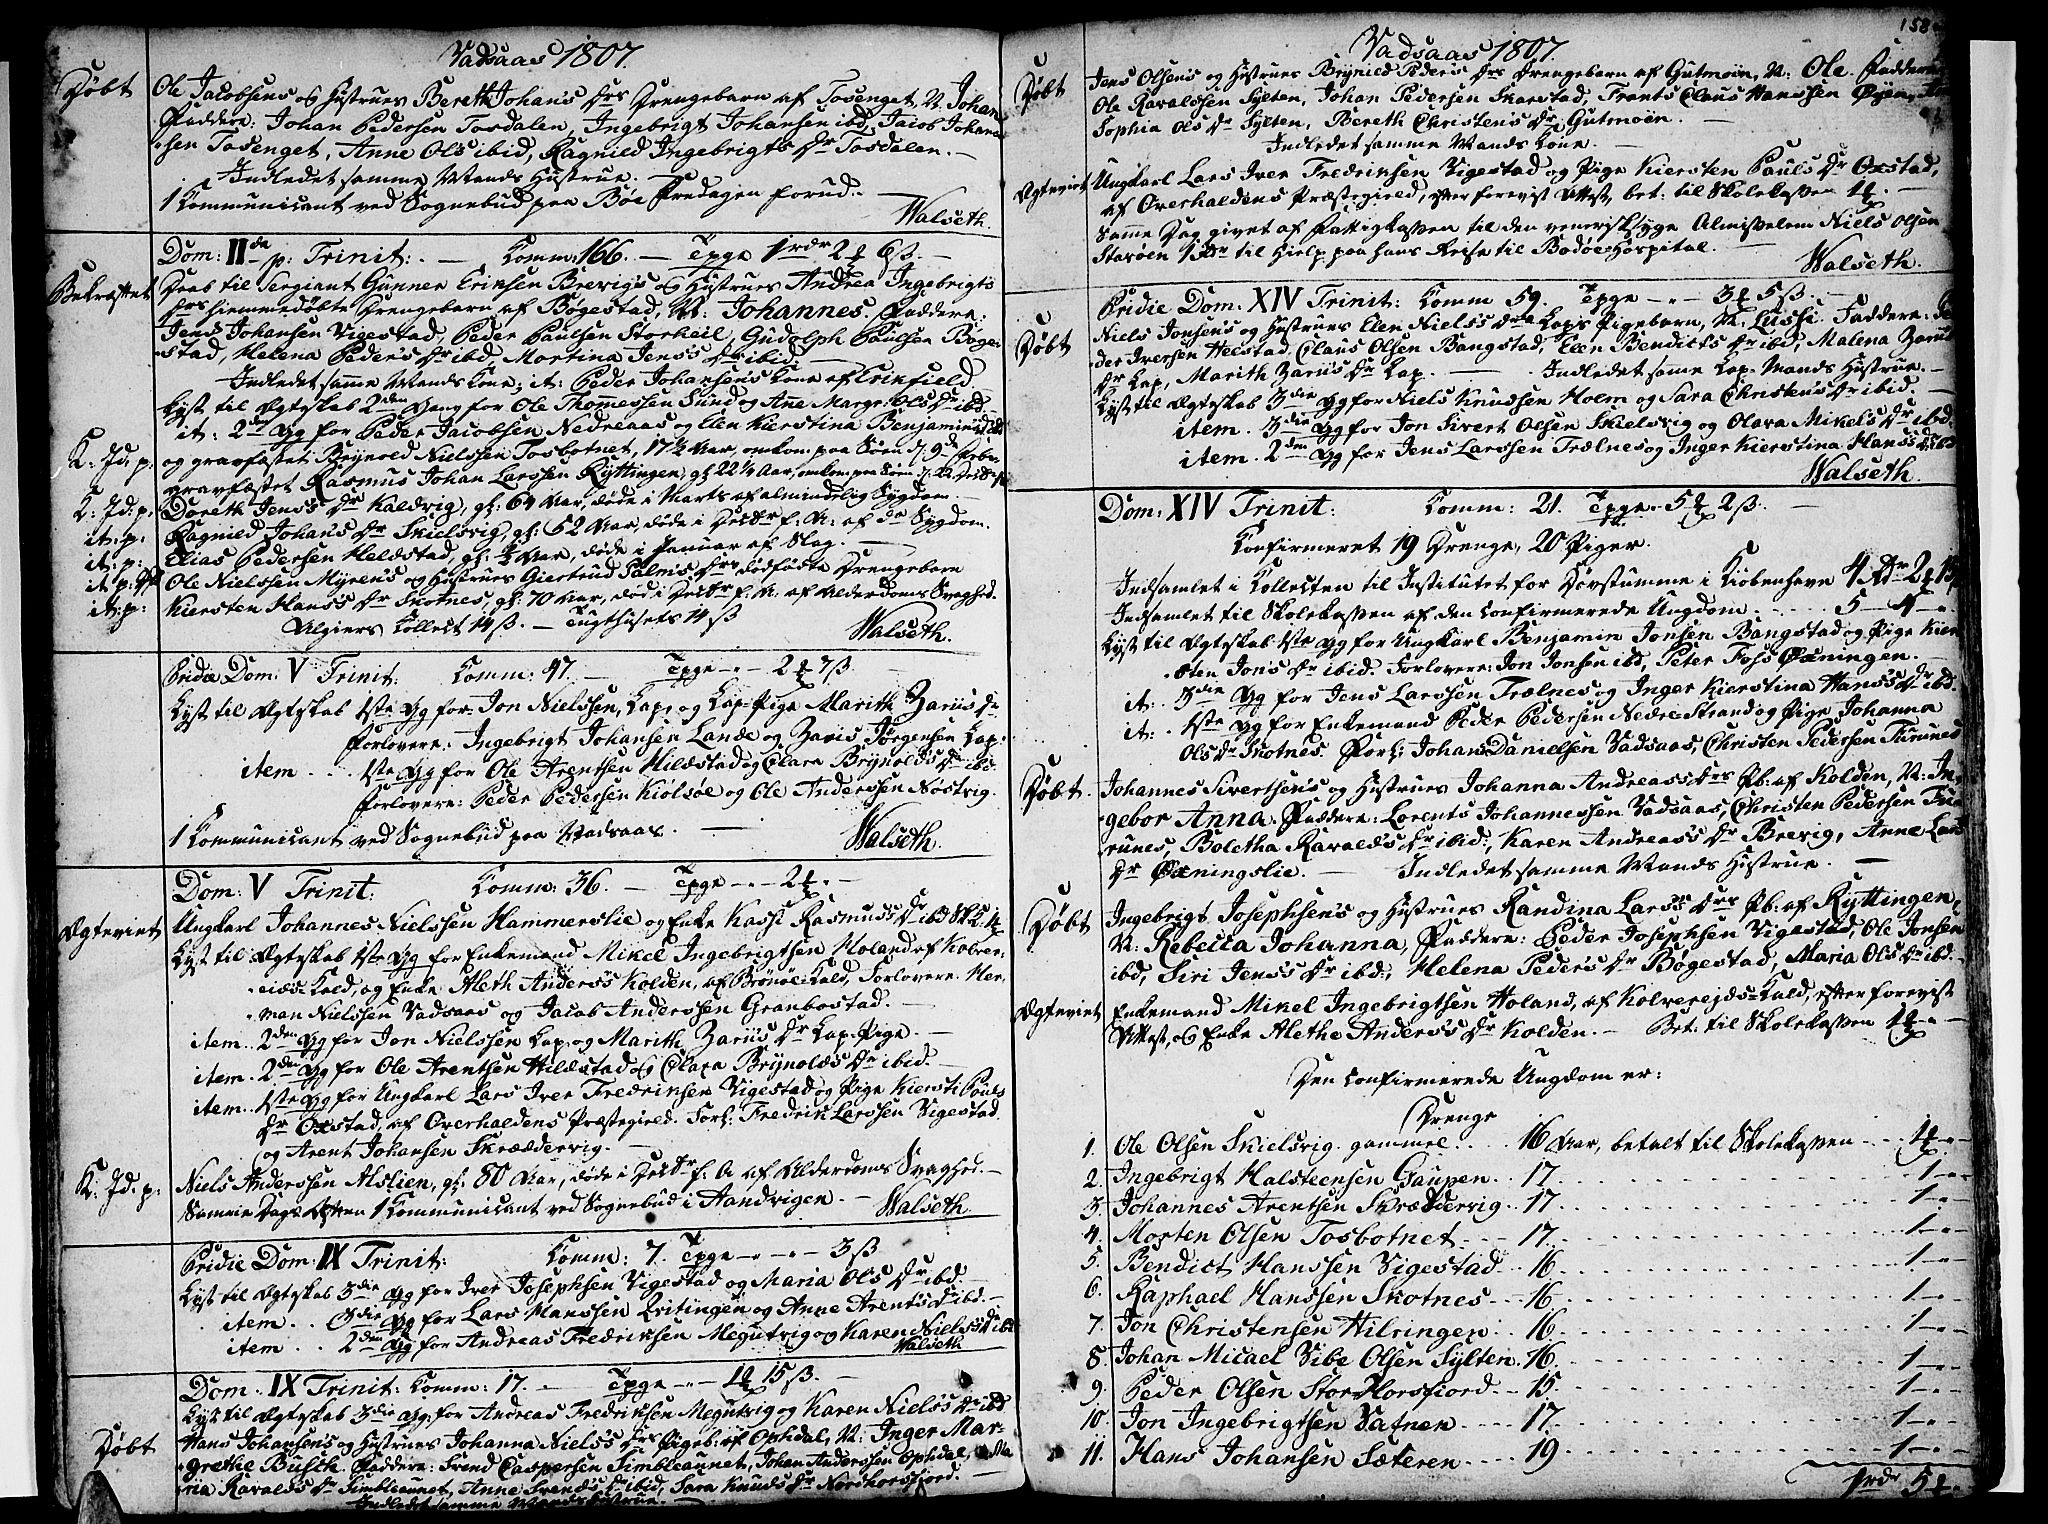 Vadsaas 1807.
Døbt
Ole Jacobsens og Hustrues Bereth Johans Drs Drengebarn af Tosenget, N. Johan
Faddere: Johan Pedersen Tosdalen, Ingebrigt Johansen ibd, Jacob Johan-
sen Tosenget, Anne Ols ibid, Ragnild Ingebrigts Dr Tosdalen.
Indledet samme Mands Hustrue.
1 Kommunicant ved Sognebud paa Bøe Fredagen forud.
Walseth.
Dom: IIde p: Trinit: Komm: 166. — Tpge 1 rdr 2 6 ß.
Bekræftet
Daab til Sergiant Gunner Eriksen Brevigs og Hustrues Andrea Ingebrigts
Drs hiemmedøbte Drengebarn af Bøgestad, N: Johannes. Faddere:
Jens Johansen Vigestad, Peder Paulsen Storheil, Gudolph Paulsen Bøge-
stad, Helena Peders Dr ibd, Martina Jens's Dr ibid:
Indledet samme Mands Kone; it: Peder Johansen's Kone af Trinfield.
Lyst til Ægteskab 2den Gang for Ole Thomessen Sund og Ane Margr: Ols Dr ibd
it: 2den Gg for Peder Jacobsen Nedreaas og Elen Kierstina Benjamins Dr ibd
K: Jd: p:
og gravfæstet Brynold Nielsen Tosbotnet, 17½ Aar, omkom paa Søen d. 9de
gravfæstet Rasmus Johan Larssen Ryttingen, gl: 22¼ Aar, omkom paa Søen
K: Jd: p:
Doreth Jens's Dr Kaldvig, gl: 64 Aar, døde i Marts af almindelig Sygdom.
it: p:
Ragnild Johans Dr Skielsvig, gl: 62 Aar, døde i Decbr f: A: af do Sygdom.
it: p:
Elias Pedersen Heldstad, gl: ¾ Aar, døde i Januar af Slag.
it: p:
Ole Nielssen Myren's og Hustrues Giertrud Palms Drs dødfødte Drengebarn
it: p:
Kiersten Hans's Dr Skotnes, gl: 70 Aar, død i Decbr f: A: af Alderdoms Svaghed.
Algiers Collect 14 ß. — Tugthusets 14 ß
Walseth.
Pridie Dom: V Trinit: Komm: 47. Tpge — 2 7 ß.
Lyst til Ægteskab 1ste Gg for Jon Nielssen, Lap, og Lap-Pige Marith Zariis Dr
Forlovere: Ingebrigt Johansen Lande og Zaris Jørgensen Lap.
item . . . 1ste Gg for Ole Arentsen Hildstad og Clara Brynolds Dr ibd.
Forlovere: Peder Pedersen Kiølsøe og Ole Anderssen Nøstvig.
1 Kommunicant ved Sognebud paa Vadsaas.
Walseth.
Dom: V Trinit: Komm: 36. — Tpge — 2
Ægteviet
Ungkarl Johannes Nielssen Hammerslie og Enke Kasst Rasmus's Dr ibd
Lyst til Ægteskab 1ste Gg for Enkemand Mikel Ingebrigtsen Holand af Kolver-
eids-Kald, og Enke Aleth Anders's Kolden, af Brønøe Kald, Forlovere: Her-
man Nielsen Vadsaas og Jacob Anderssen Granbostad.
item. 2den Gg for Jon Nielssen Lap og Marith Zariis Dr Lap-Pige.
item. 2den Gg for Ole Arentsen Hildstad og Clara Brynolds Dr ibid.
item. 1ste Gg for Ungkarl Lars Iver Fredriksen Vigestad og Pige Kiersti Pauls
Dr Oxstad, af Overhaldens Præstegield. Forl: Fredrik Larssen Vigestad
og Arent Johansen Skræddervig.
K: Jd: p:
Niels Anderssen Aslien, gl: 80 Aar, døde i Decbr f: A: af Alderdoms Svaghed.
Samme Dags Aften 1 Kommunicant ved Sognebud i Aandvigen. — Walseth
Pridie Dom: IX Trinit: Komm: 7. Tpge — 3 ß
Lyst til Ægteskab 3die Gg for Iver Josephsen Vigestad og Maria Ols Dr ibd.
item . . 3die Gg for Lars Hanssen Qvitingen og Anne Arents Dr ibd.
item . . 2den Gg for Andreas Fredriksen Megutvig og Karen Niels's Dr ibd
Walseth
Dom: IX Trinit: Komm: 17. Tpge — 1 15 ß.
Lyst til Ægteskab 3die Gg: for Andreas Fredriksen Megutvig og Karen Niels's Dr ibd
Døbt
Hans Johansen's og Hustrues Johanna Niels's Drs Pigeb: af Ophdal, N: Inger Mar-
grethe Busch. Faddere: Svend Caspersen Simbleaunet, Johan Anderssen Ophdal, Ma
ria Ravalds Dr Simbleaunet, Anne Svends Dr ibid, Sara Knuds Dr Nordhorsfiord.
Indledet samme Mands Hustrue.
158
Vadsaas 1807.
Døbt
Jens Olsens og Hustrues Brynild Peders Drs Drengebarn af Gutmoen, N: Ole. Faddere
Ole Ravaldsen Sylten, Johan Pedersen Skarstad, Frants Claus Hanssen Øxen,
Sophia Ols Dr Sylten, Bereth Christens Dr Gutmoen.
Indledet samme Mands Kone.
Ægteviet
Ungkarl Lars Iver Fredriksen Vigestad og Pige Kiersten Pauls Dr Oxstad,
af Overhaldens Præstegield, efter forevist Attest, bet: til Skolekassen 1
Samme Dag givet af Fattigkassen til den venerisksyge Almisselem Niels Olsen
Starøen 1 Rdr til Hielp paa hans Reise til Bodøe Hospital.
Walseth.
Pridie Dom: XIV Trinit: Komm 59. Tpge — 3 5 ß.
Døbt
Niels Jonsens og Hustrues Elen Niels's Drs Laps Pigebarn, N: Lussi. Faddere: Pe
der Iversen Heestad, Claus Olsen Bangstad, Elen Bendicts Dr ibid, Malena Zariis
Dr Lap, Marith Zariis Dr Lap. Indledet same Lap-Mands Hustrue.
Lyst til Ægteskab 3die Gg for Niels Knussen Holm og Sara Christens Dr ibid.
item. 3die Gg for Jon Sivert Olsen Skielsvig og Olava Mikels Dr ibd.
item. 2den Gg for Jens Larssen Trælnes og Inger Kierstina Hans's Dr ibd
Walseth.
Dom: XIV Trinit: Komm: 21. Tpge — 5 2 ß. —
Konfirmeret 19 Drenge, 20 Piger.
Indsamlet i Collecten til Institutet for Døvstumme i Kiøbenhavn 4 Rdr 2 15
Indsamlet til Skolekassen af den confirmerede Ungdom . . . . 5 — 4 —
Lyst til Ægteskab 1ste Gg for Ungkarl Benjamin Jonsen Bangstad og Pige Kier-
sten Jons Dr ibid. Forlovere: Jon Jonsen ibd, Peter Foss Øxningen.
it: . 3die Gg for Jens Larssen Trælnes og Inger Kierstina Hans's Dr ibd.
it: . 1ste Gg for Enkemand Peder Pedersen Nedre Strand og Pige Johanna
Ols Dr Skotnes. Forl: Johan Danielsen Vadsaas, Christen Pedersen Tururnes
Døbt.
Johannes Siverthsen's og Hustrues Johanna Andreas's Drs Pb: af Kolden, N: In-
gebor Anna. Faddere: Lorents Johannessen Vadsaas, Christen Pedersen Tu-
runes, Boletha Ravalds Dr ibid:, Karen Andreas's Dr Brevig, Anne Lars
Dr Øxningslie. — Indledet samme Mands Hustrue. —
Døbt
Ingebrigt Josephsen's og Hustrues Randina Lars's Drs Pb: af Ryttingen,
N: Rebecca Johanna, Faddere: Peder Josephsen Vigestad, Ole Jonsen
ibd, Siri Jens's Dr ibd:, Helena Peders Dr Bøgestad, Maria Ols Dr ibd.
Ægteviet
Enkemand Mikel Ingebrigtsen Holand, af Kolvereids-Kald, efter forevist
Attest, og Enke Alethe Anders's Dr Kolden. — Bet: til Skolekassen 1
Den confirmerede Ungdom er:
Drenge
1. Ole Olsen Skielsvig gammel . . . 16 Aar, betalt til Skolekassen . . . 1
2. Ingebrigt Halsteensen Gaupen . . 17 . . . 1 —
3. Johannes Arentsen Skræddervig . . 17 . . . 1 —
4. Morten Olsen Tosbotnet . . . 17. . . . 1 —
5. Bendict Hanssen Vigestad . . 16 . . . 1 —
6. Raphael Hanssen Skotnes . . . 16 . . . 1 —
7. Jon Christensen Hilringen . . 16. . . . 1 —
8. Johan Micael Vibe Olsen Sylten . 16. . . . 1 —
9. Peder Olsen Stor Horsfiord . . 15. . . . 1 —
10. Jon Ingebrigtsen Vatnen . . . . 17. . . . 1 —
11. Hans Johansen Sæteren . . . . 19 . . . 1 —
1 rdr 5